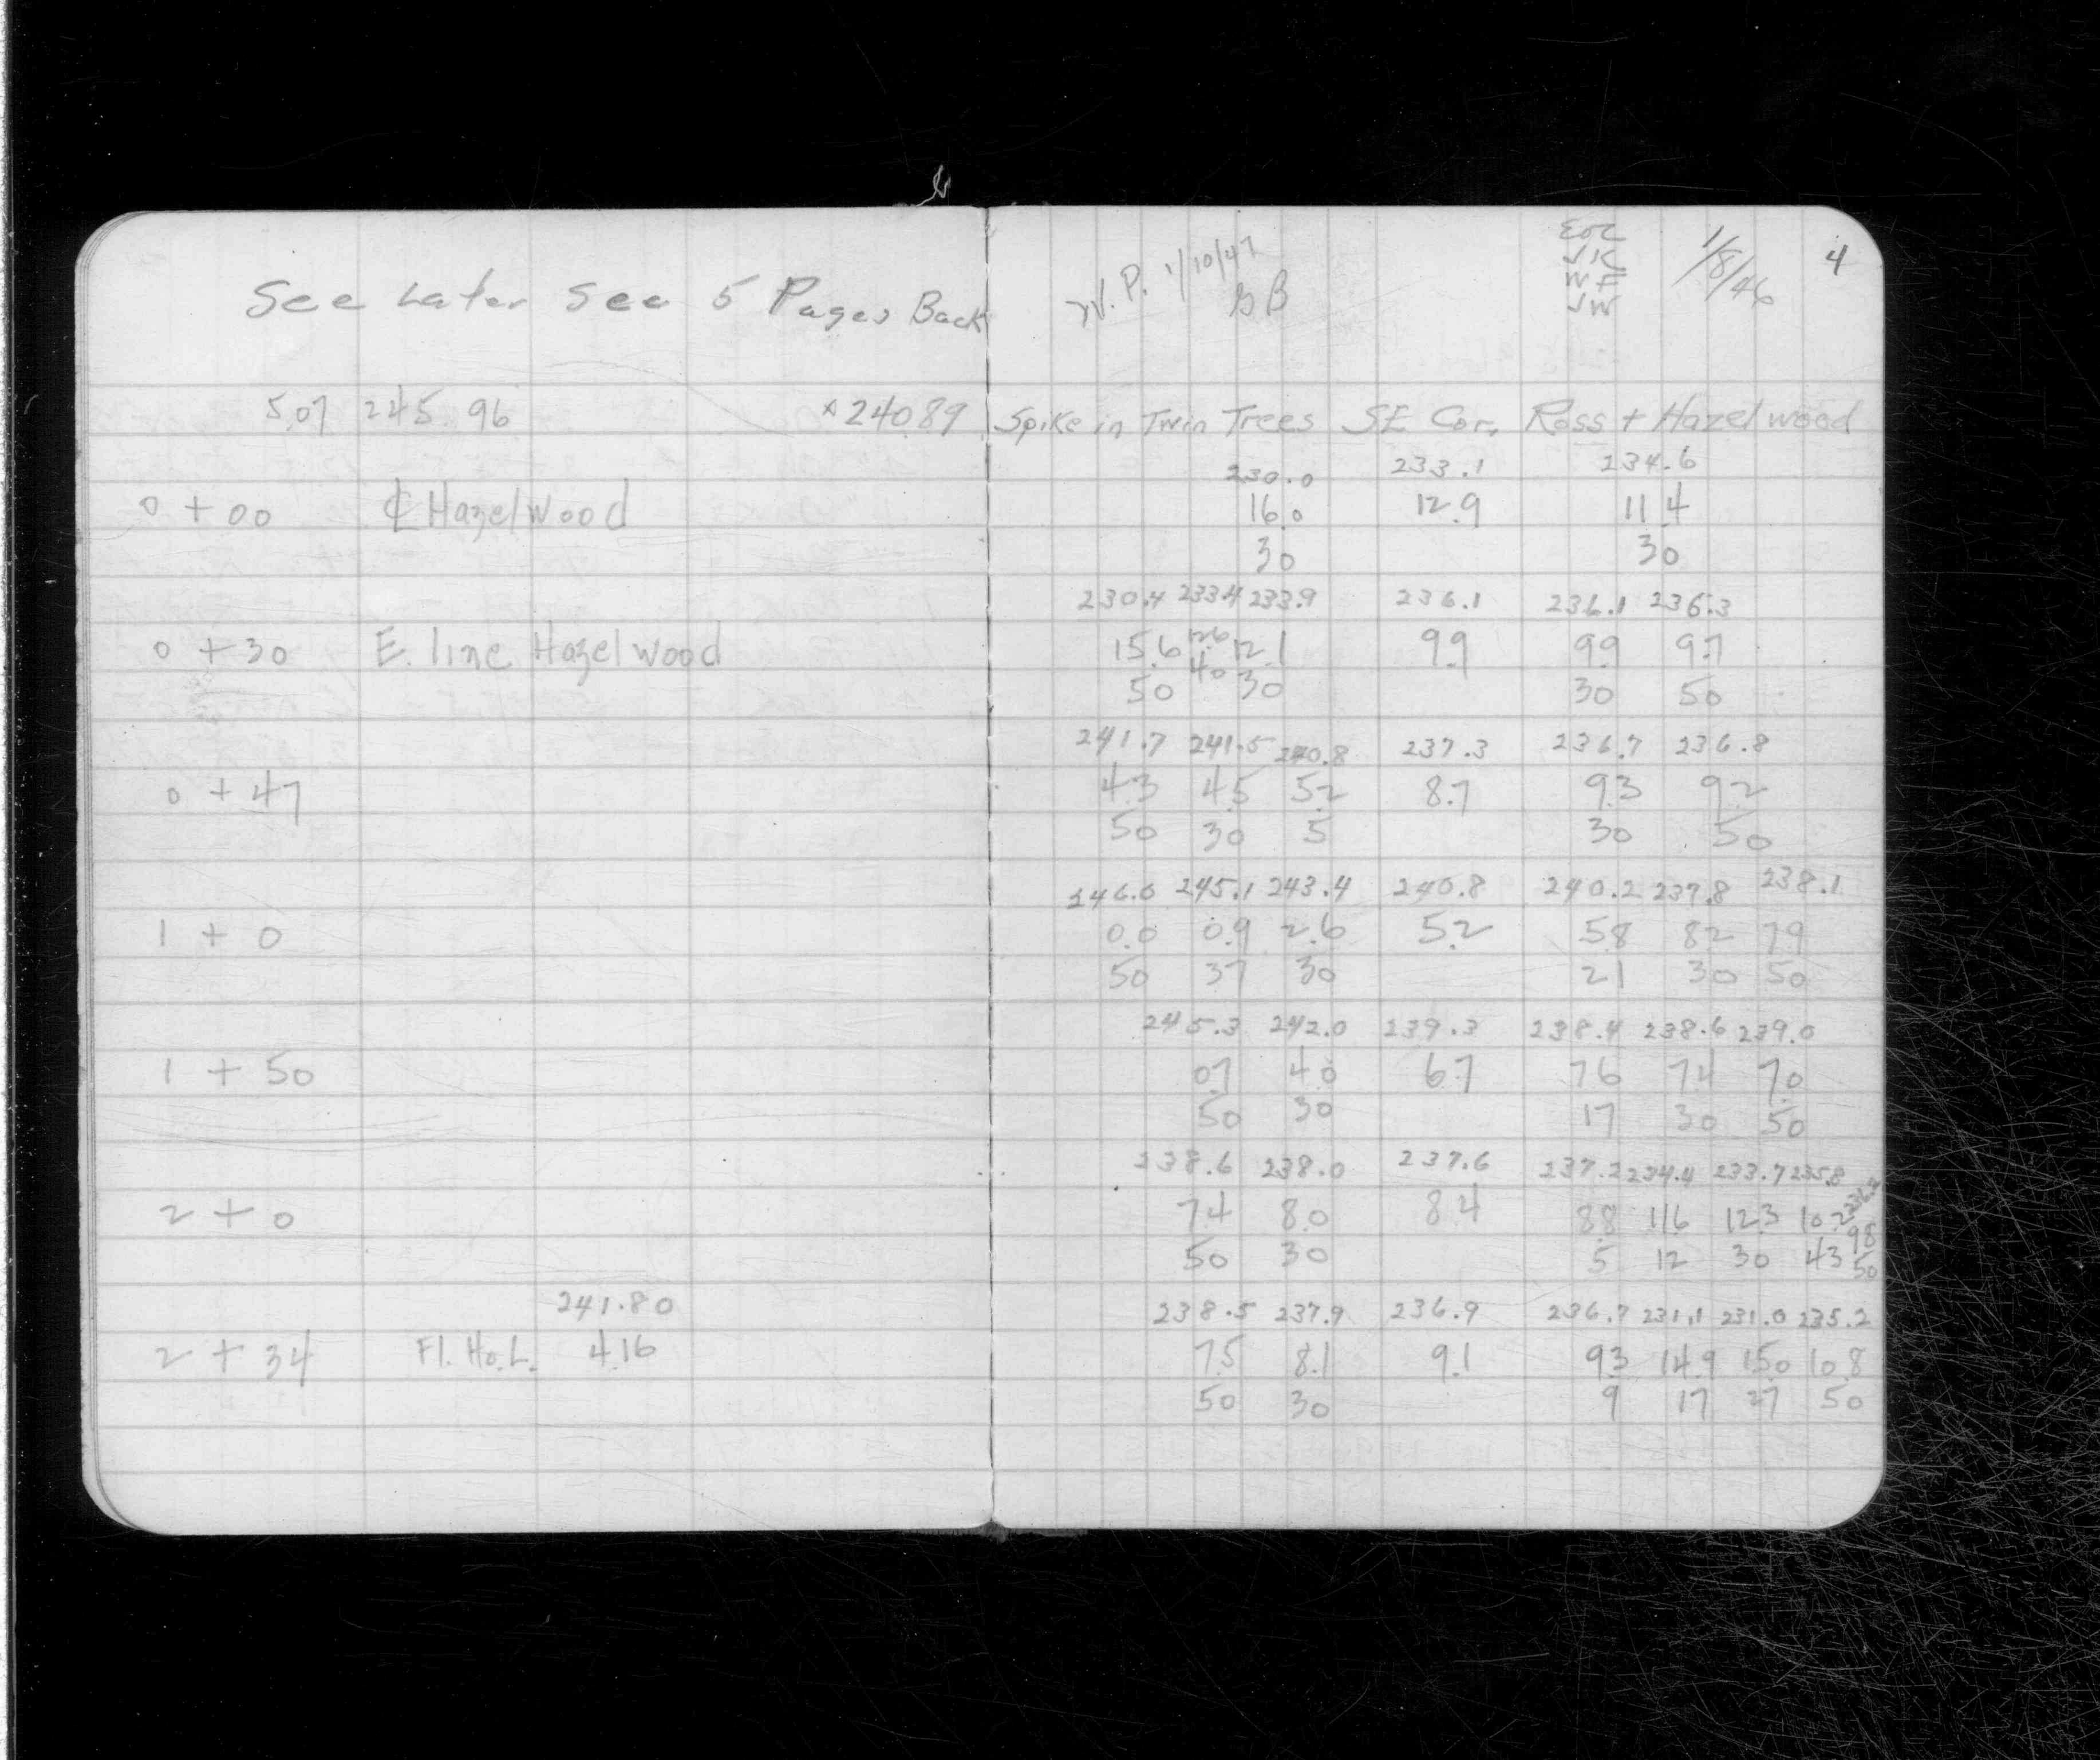 See Later See 5 Pages Back
W. P. 1/10/47
GB
EOC
JK
WF
JW
1/8/46
4
5.07 245.96 x 240.89 Spike in Twin Trees SE Cor. Ross + Hazelwood
230.0 233.1 234.6
0 + 00 ℄ Hazelwood 16.0 12.9 11.4
30 30
230.4 233.4 233.9 236.1 236.1 236.3
0 + 30 E. line Hazelwood 15.6 12.6 12.1 9.9 9.9 9.7
50 40 30 30 50
241.7 241.5 240.8 237.3 236.7 236.8
0 + 47 4.3 4.5 5.2 8.7 9.3 9.2
50 30 5 30 50
246.0 245.1 243.4 240.8 240.2 237.8 238.1
1 + 0 0.0 0.9 2.6 5.2 5.8 8.2 7.9
50 37 30 21 30 50
245.3 242.0 239.3 238.4 238.6 239.0
1 + 50 0.7 4.0 6.7 7.6 7.4 7.0
50 30 17 30 50
238.6 238.0 237.6 237.2 234.4 233.7 235.8 236.2
2 + 0 7.4 8.0 8.4 8.8 11.6 12.3 10.2 9.8
50 30 5 12 30 43 50
241.80 238.5 237.9 236.9 236.7 231.1 231.0 235.2
2 + 34 Fl. Ho. L. 4.16 7.5 8.1 9.1 9.3 14.9 15.0 10.8
50 30 9 17 27 50